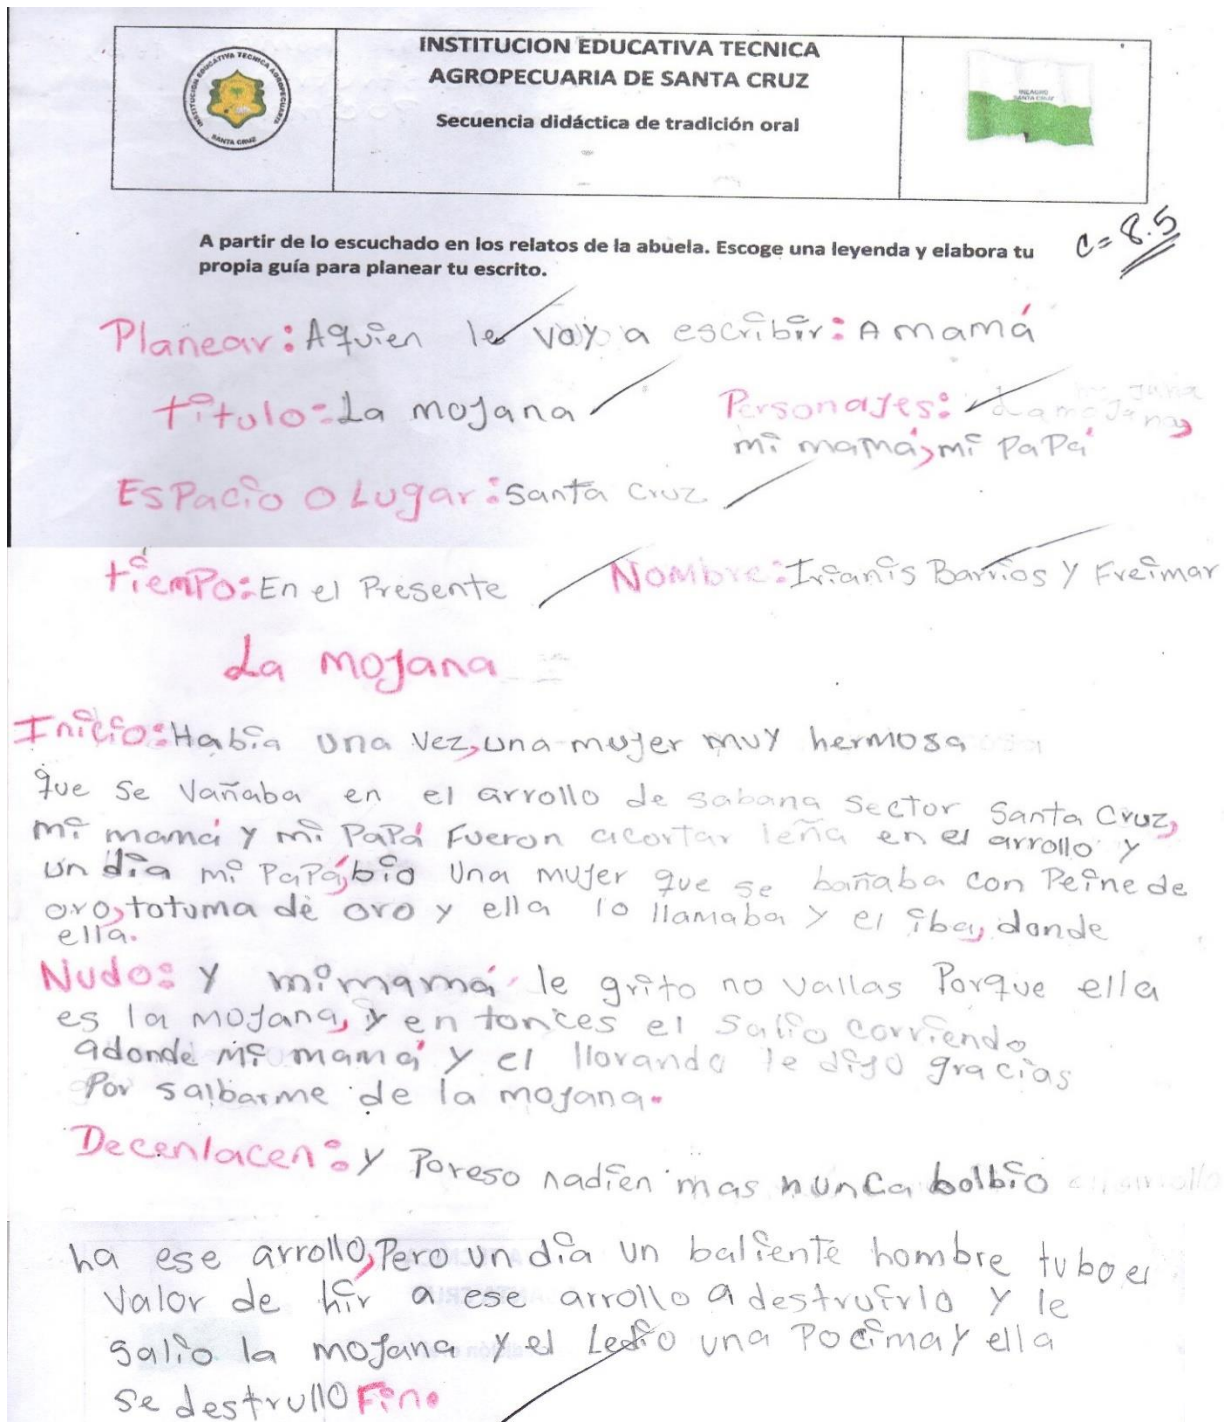 INSTITUCION EDUCATIVA TECNICA
AGROPECUARIA DE SANTA CRUZ
Secuencia didáctica de tradición oral
INSTITUCION EDUCATIVA TECNICA AGROPECUARIA
SANTA CRUZ
SANTA CRUZ
C= 8.5
A partir de lo escuchado en los relatos de la abuela. Escoge una leyenda y elabora tu
propia guía para planear tu escrito.
Planear: Aquien le voy a escribir: A mamá
titulo: La mojana
Personajes: La mojana,
mi mamá, mi PaPá
EsPacio o Lugar: Santa Cruz
tiemPo: En el Presente
Nombre: Irianis Barrios y Freimar
La mojana
Inicio: Habia una vez, una mujer muy hermosa
que se vañaba en el arrollo de sabana sector Santa Cruz,
mi mamá y mi PaPá Fueron acortar leña en el arrollo y
un dia mi PaPá, bio una mujer que se bañaba con Peine de
oro, totuma de oro y ella lo llamaba y el iba, donde
ella.
Nudo: y mimamá le grito no vallas Porque ella
es la mojana, y en tonces el salio corriendo
adonde mi mamá y el llorando le dijo gracias
Por salbarme de la mojana.
Decenlacen: y Poreso nadien mas nunca bolbio
ha ese arrollo, Pero un dia un baliente hombre tubo el
valor de hir a ese arrollo a destruirla y le
salio la mojana y el Ledio una Pocima y ella
se destrullo Fin.